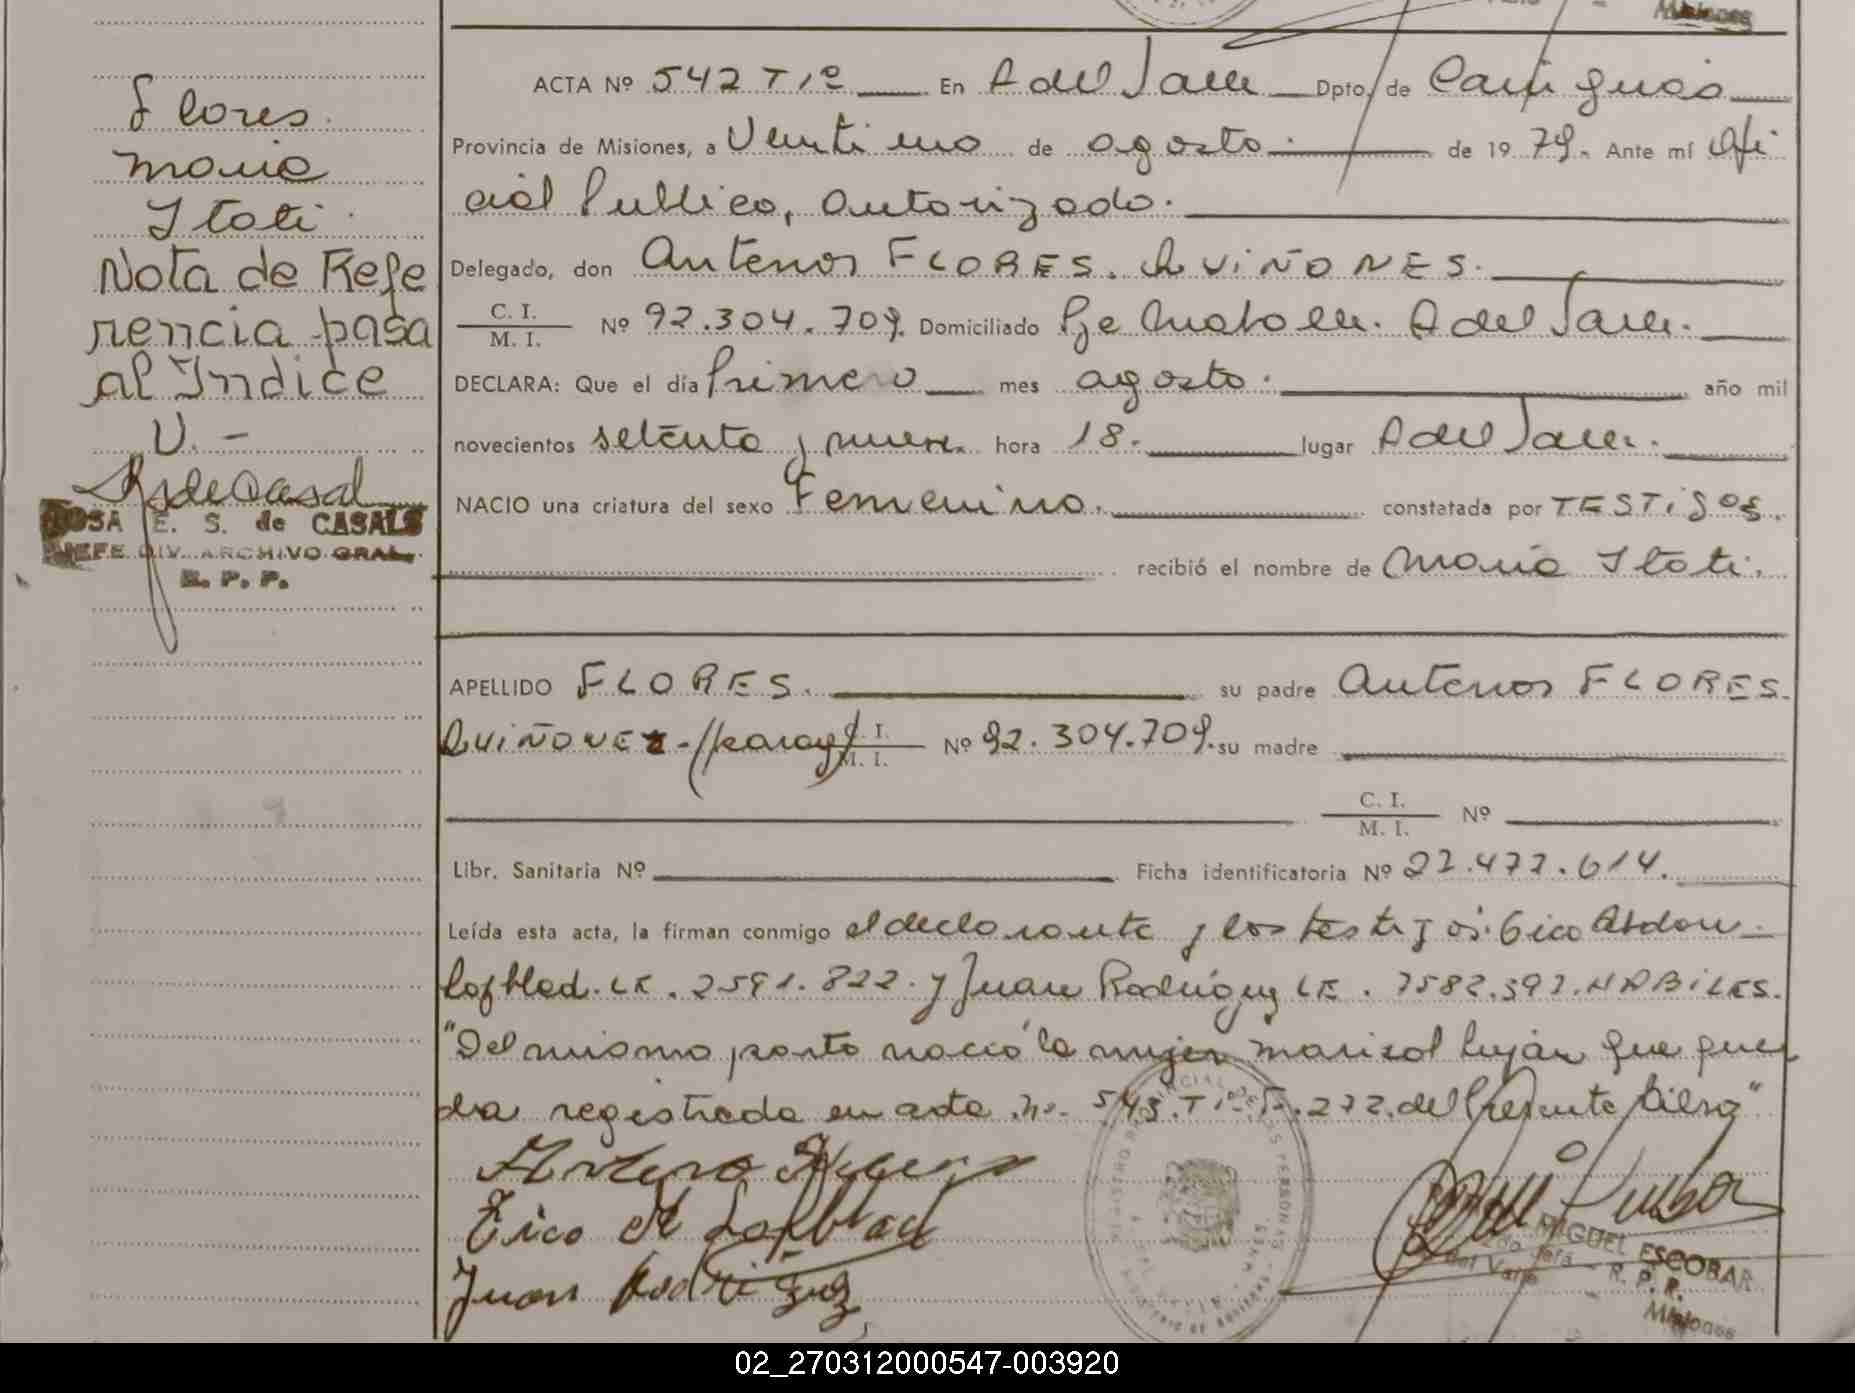 Misiones
Flores
Maria
Itati
Nota de Refe
rencia pasa
al Indice
V. -
ROSA E. S. de CASALS
JEFE DIV. ARCHIVO GRAL.
R. P. P.
ACTA Nº 542 Tº 1º En A del Valle Dpto, de Cainguás
Provincia de Misiones, a Veintiuno de agosto. de 19 79. Ante mí Ofi
cial Publico, autorizado.
Delegado, don Antenor FLORES. QUIÑONES.
C. I.
M. I. Nº 92.304.709. Domiciliado A del Valle.
DECLARA: Que el día Primero mes agosto. año mil
novecientos setenta y nueve. hora 18. lugar A del Valle.
NACIO una criatura del sexo Femenino. constatada por TESTiGOS.
recibió el nombre de Maria Itati.
APELLIDO FLORES. su padre Antenor FLORES.
QUIÑONEZ - C. I.
M. I. Nº 92.304.709. su madre
C. I.
M. I. Nº
Libr. Sanitaria Nº Ficha identificatoria Nº 27.477.614.
Leída esta acta, la firman conmigo el declarante y los testigos. Erico Abdon
Lofblad. LE. 2591.822. y Juan Rodriguez LE. 7582.397. HABiLES.
"Del mismo parto nació la mujer Marisol Luján que que
da registrada en acta no. 543. Tº 1º. Fº. 272. del Presente Libro"
Erico A Lofblad
Juan Rodriguez
MIGUEL ESCOBAR
del Valle - R. P. P.
Misiones
02_270312000547-003920